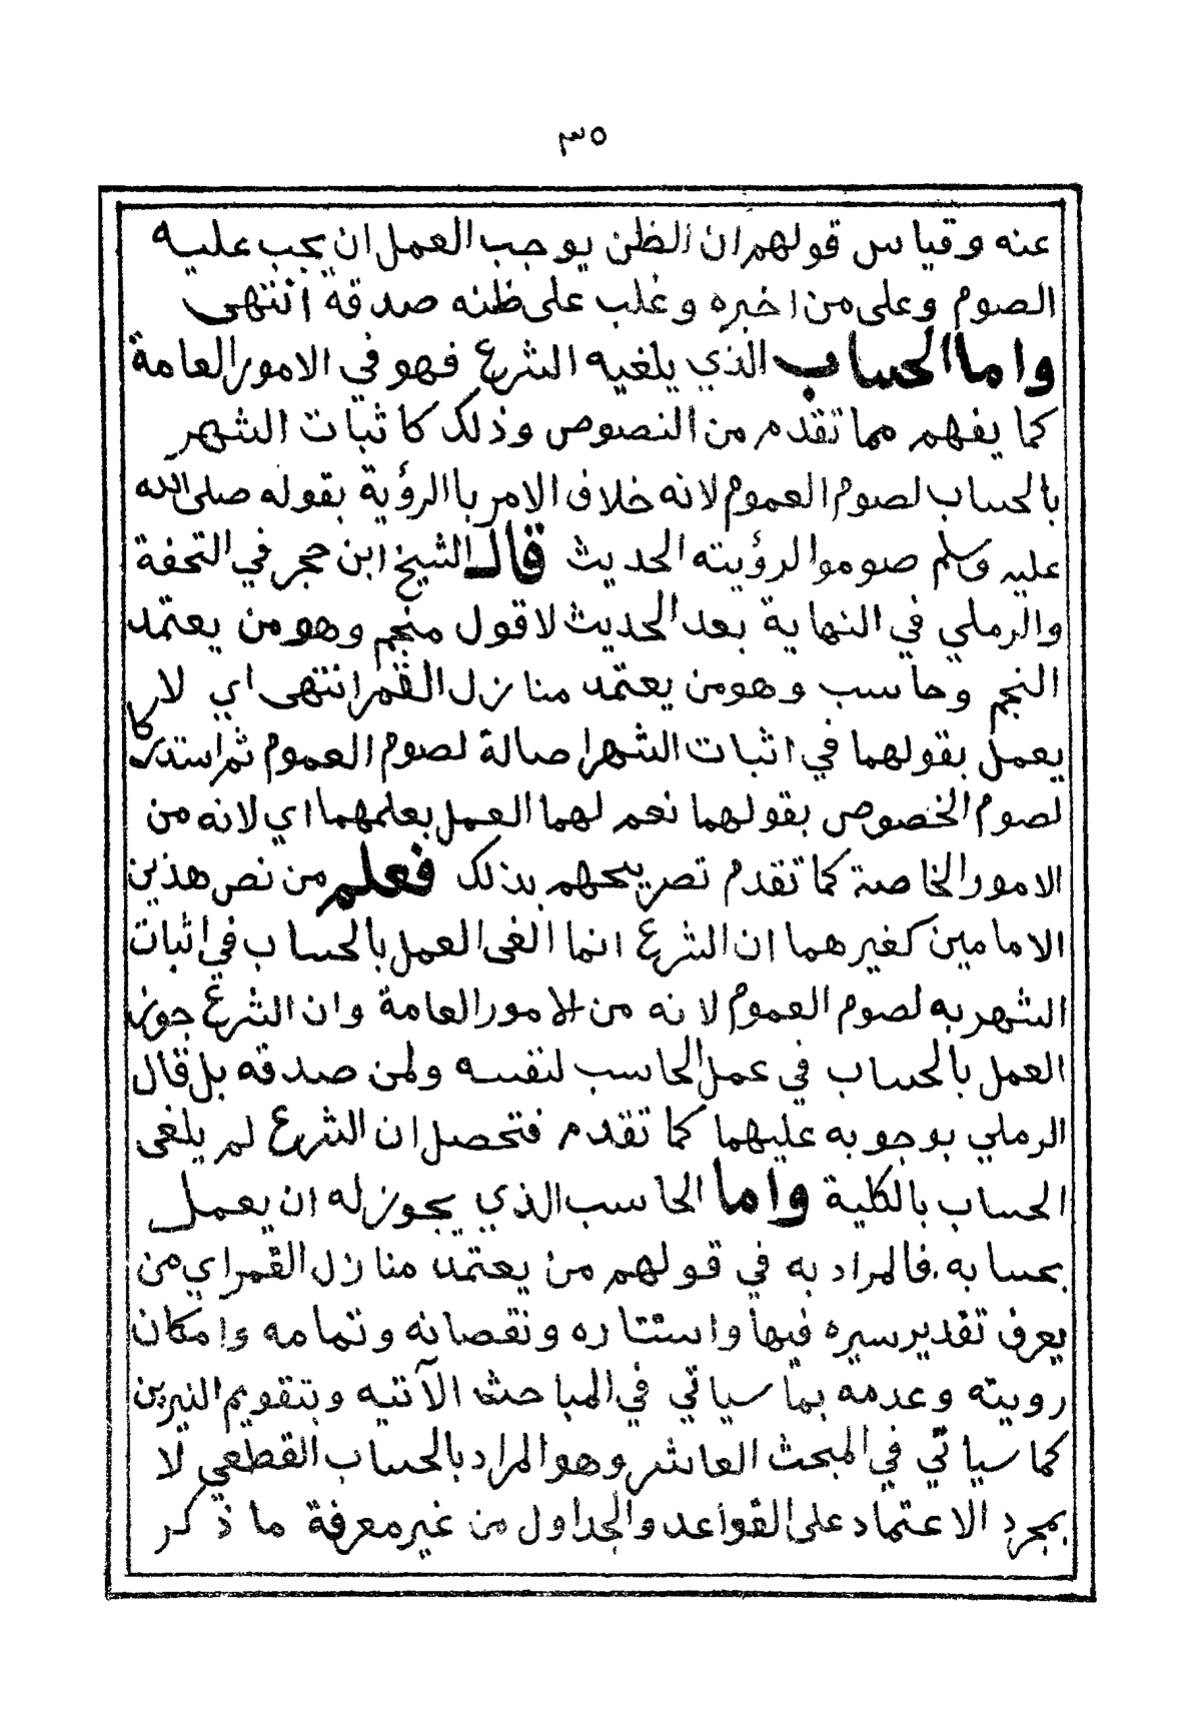 ٣٥
عنه وقياس قولهم ان الظن يوجب العمل ان يجب عليه
الصوم وعلى من اخبره وغلب على ظنه صدقه انتهى
واما الحساب الذي يلغيه الشرع فهو في الامور العامة
كما يفهم مما تقدم من النصوص وذلك كاثبات الشهر
بالحساب لصوم العموم لانه خلاف الامر باالرؤية بقوله صلى الله
عليه وسلم صوموا لرؤيته الحديث قال الشيخ ابن حجر في التحفة
والرملي في النهاية بعد الحديث لا قول منجم وهو من يعتمد
النجم وحاسب وهو من يعتمد منازل القمر انتهى اي لا
يعمل بقولهما في اثبات الشهر اصالة لصوم العموم ثم استدركا
لصوم الخصوص بقولهما نعم لهما العمل بعلمهما اي لانه من
الامور الخاصة كما تقدم تصريحهم بذلك فعلم من نص هذين
الامامين كغيرهما ان الشرع انما الغى العمل بالحساب في اثبات
الشهر به لصوم العموم لانه من الامور العامة وان الشرع جوز
العمل بالحساب في عمل الحاسب لنفسه ولمن صدقه بل قال
الرملي بوجوبه عليهما كما تقدم فتحصل ان الشرع لم يلغى
الحساب بالكلية واما الحاسب الذي يجوز له ان يعمل
بحسابه. فالمراد به في قولهم من يعتمد منازل القمر اي من
يعرف تقدير سيره فيها واستتاره ونقصانه وتمامه وامكان
رويته وعدمه بما سياتي في المباحث الآتيه وبتقويم النيرين
كما سياتي في المبحث العاشر وهو المراد بالحساب القطعي لا
بمجرد الاعتماد على القواعد والجداول من غير معرفة ما ذكر